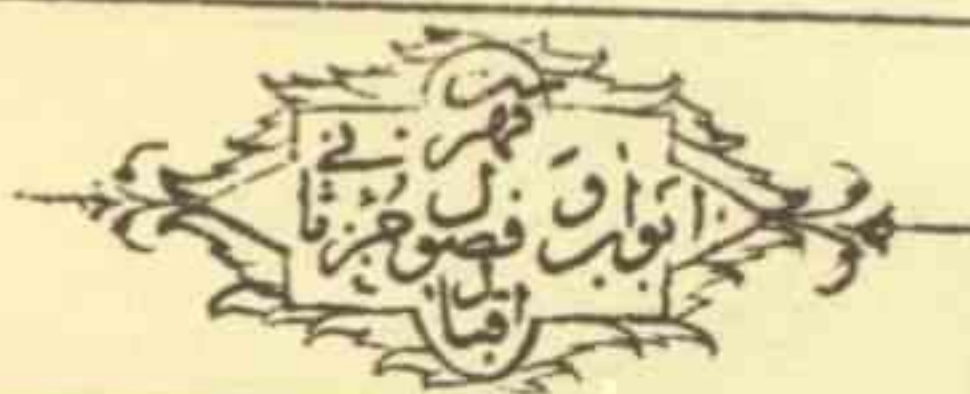 فهرست
ابواب و فصول جزء ثاني
اقبال